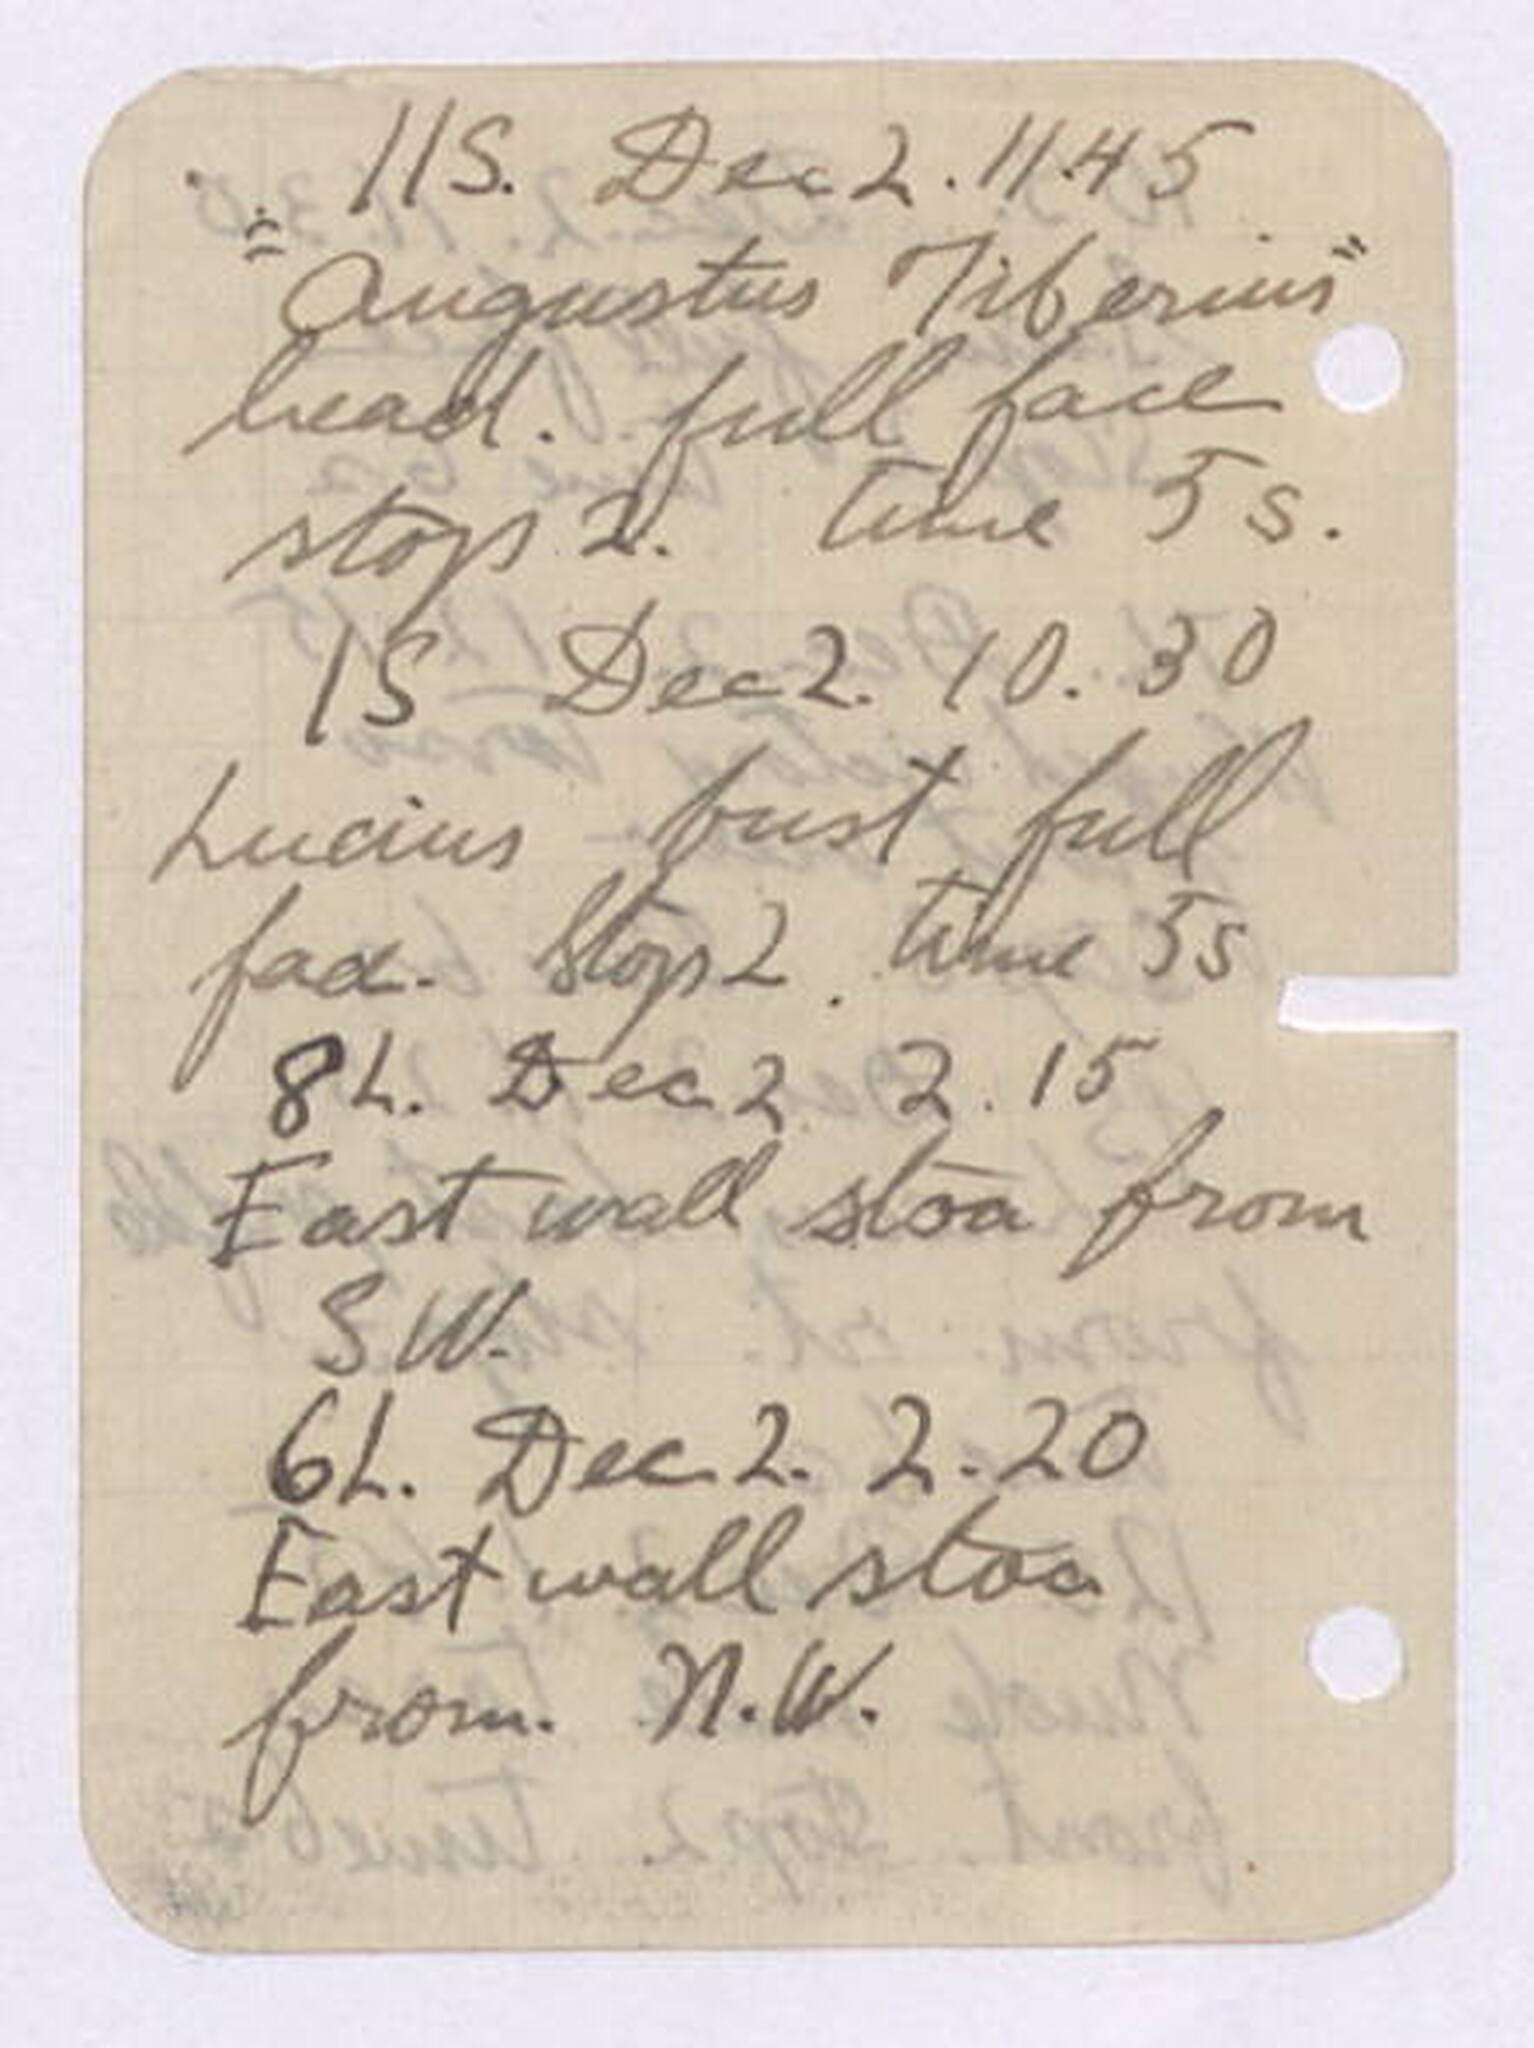 11S. Dec 2. 11.45
"Augustus Tiberius"
head. full face
stops 2. time 5s.
1S Dec 2. 10.30
Lucius bust full
face. Stops 2. time 5s
8L. Dec 2. 2.15
East wall stoa from
S W.
6L. Dec 2. 2.20
East wall stoa
from. N.W.